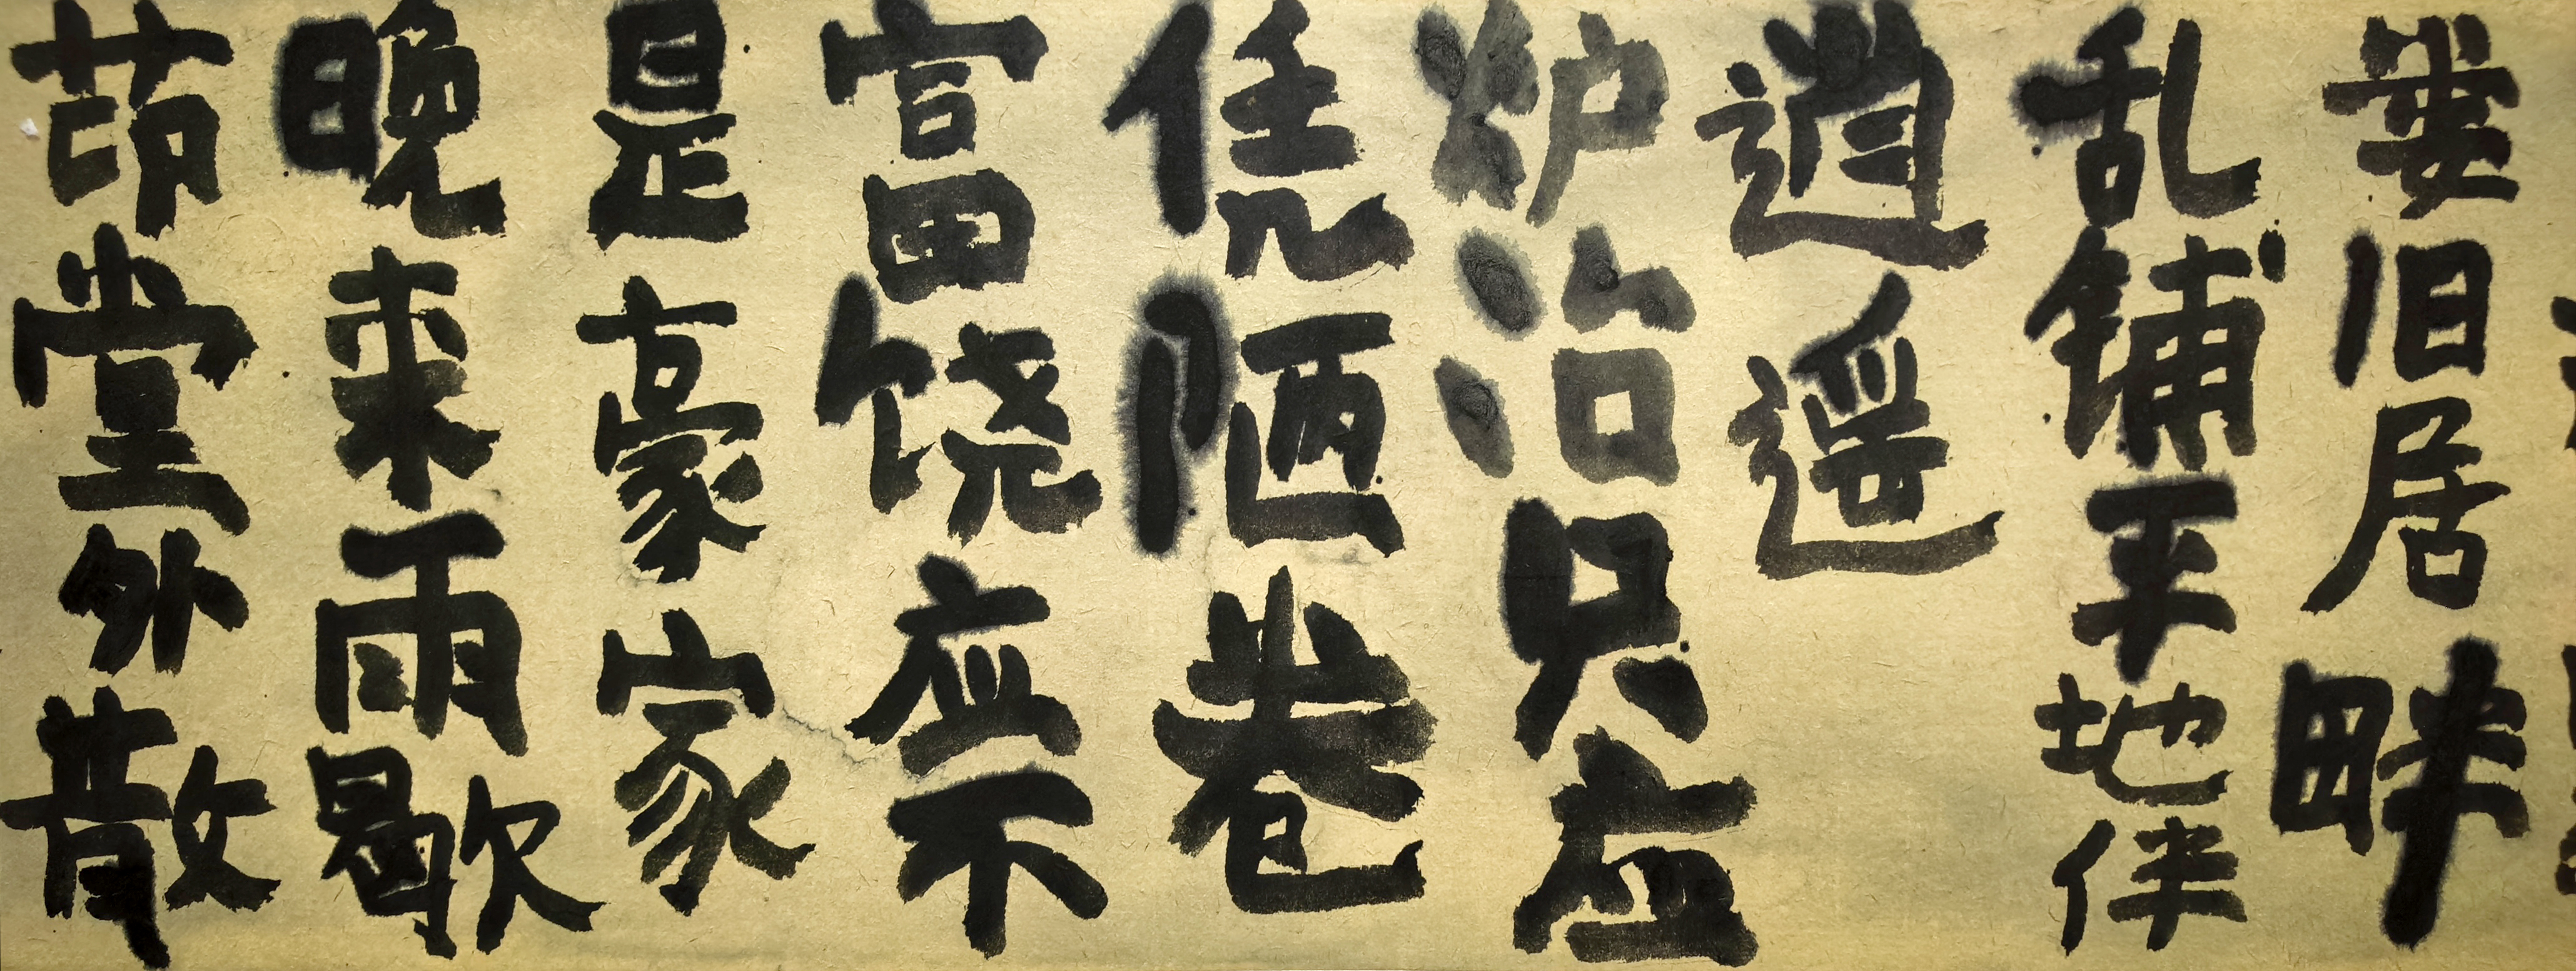 萋旧居畔
乱铺平地伴
逍遥
炉冶只应
凭陋巷
富饶应不
是豪家
晚来雨歇
茆堂外散